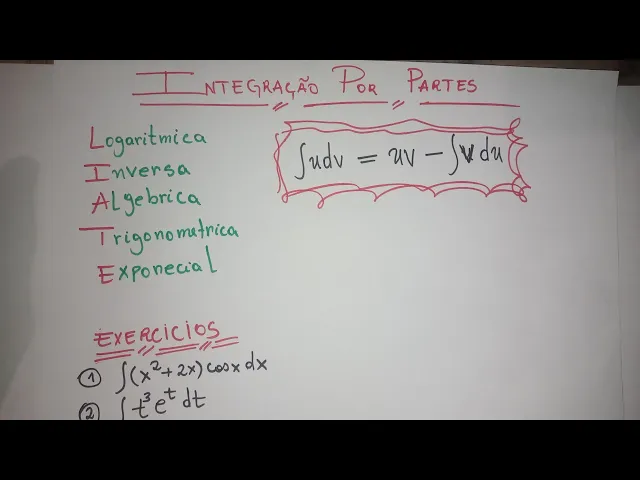 INTEGRAÇÃO POR PARTES
Logaritmica
Inversa
Algebrica
Trigonometrica
Exponecial
∫udv = uv − ∫v du
EXERCICIOS
① ∫(x²+2x) cosx dx
② ∫t³e^t dt